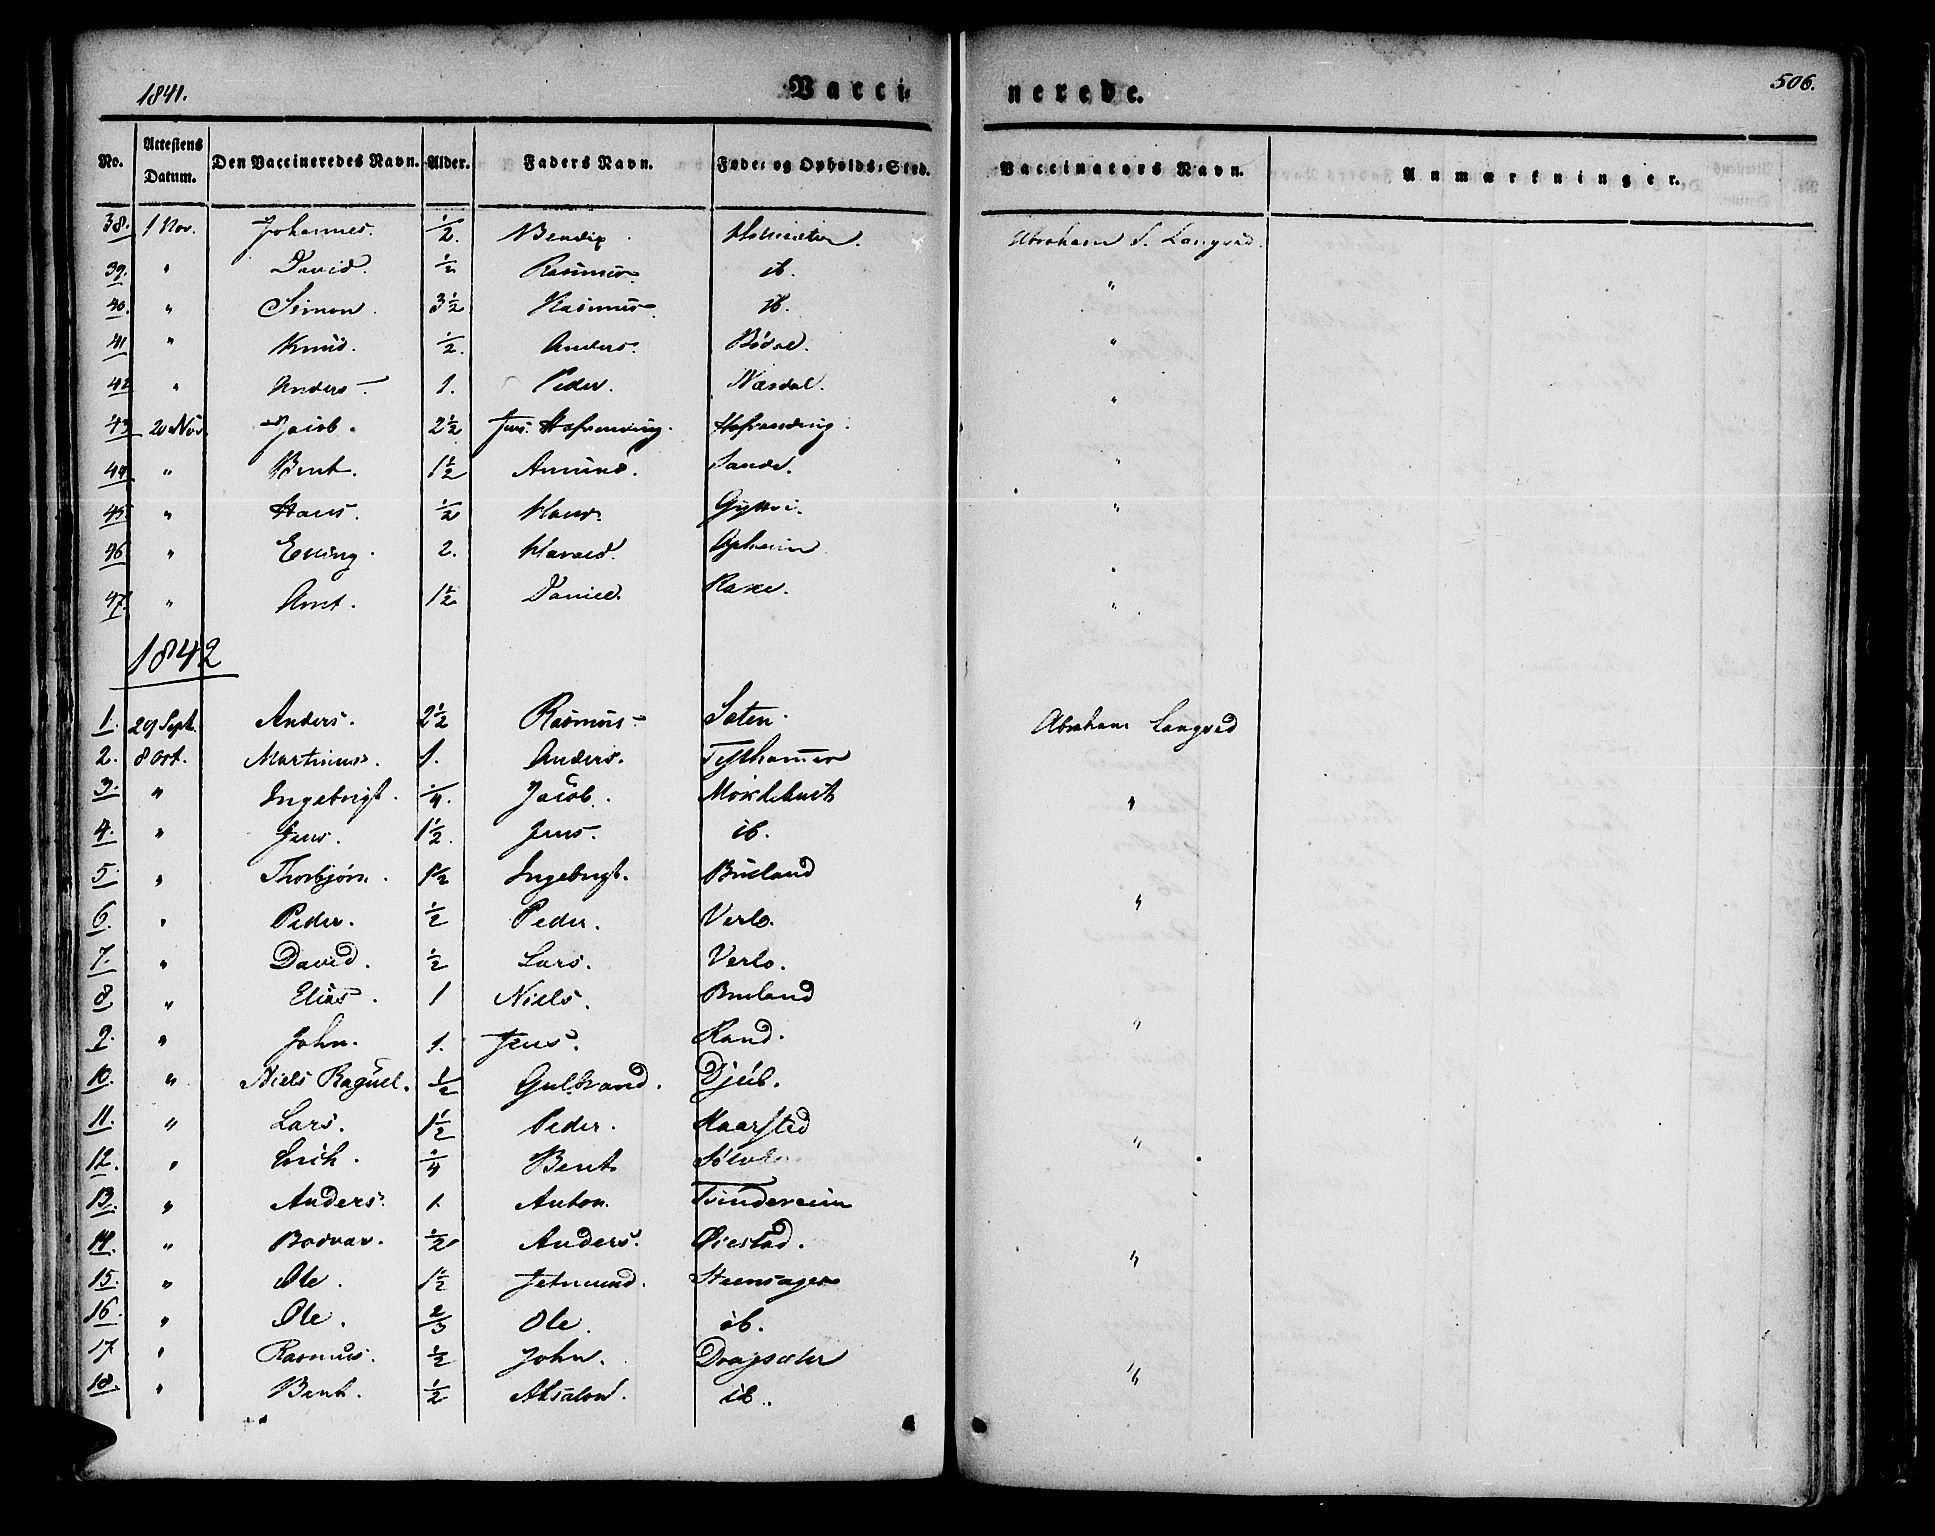 1841. Vacci- nerede. 506.
No. Attestens Datum. Den Vaccineredes Navn. Alder. Faders Navn. Føde- og Opholds-Sted. Vaccinators Navn. Anmærkninger.
38. 1 Nov. Johannes. ½. Bendix. Abraham S. Langsæd.
39. " David. ½ Rasmus ib. "
40. " Simon. 3½ Rasmus ib.
41 " Knud. ½. Anders. Bödal. "
42 " Anders 1. Peder. Næsdal. "
43 20 Nov. Jacob. 2½ Jens. Hafrenving.
44 " Bent. 1½ Amund. Sande. "
45 " Hans. ½ Hans. "
46 " Elling. 2. Harald. Opheim "
47. " Arnt. 1½ Daniel. Rake. "
1842
1. 29 Sept. Anders. 2½ Rasmus Sæten. Abraham Langsæd
2. 8 Oct. Martinus. 1. Anders.
3. " Ingebrigt. ¼. Jacob. Möklebust "
4. " Jens. 1½. Jens. ib.
5. " Thorbjørn. 1½ Ingebrigt. Briland
6. " Peder. ½ Peder. Verlo. "
7. " David. ½ Lars. Verlo.
8 " Elias. 1 Niels. Briland
9. " John. 1. Jens. Rand. "
10. " Niels Raguel. ½ Gulbrand. Djub.
11. " Lars. 1½ Peder. Maarsted
12. " Erich. ¼ Bent "
13. " Anders. 1. Anton.
14. " Bodvar. ½ Anders. Øiestad.
15. " Ole. 1½ Jetmund. Steensager "
16. " Ole. ⅔ Ole. ib.
17 " Rasmus. ½ John. Dragsæter
18. " Bent. ½ Absalon. ib. "